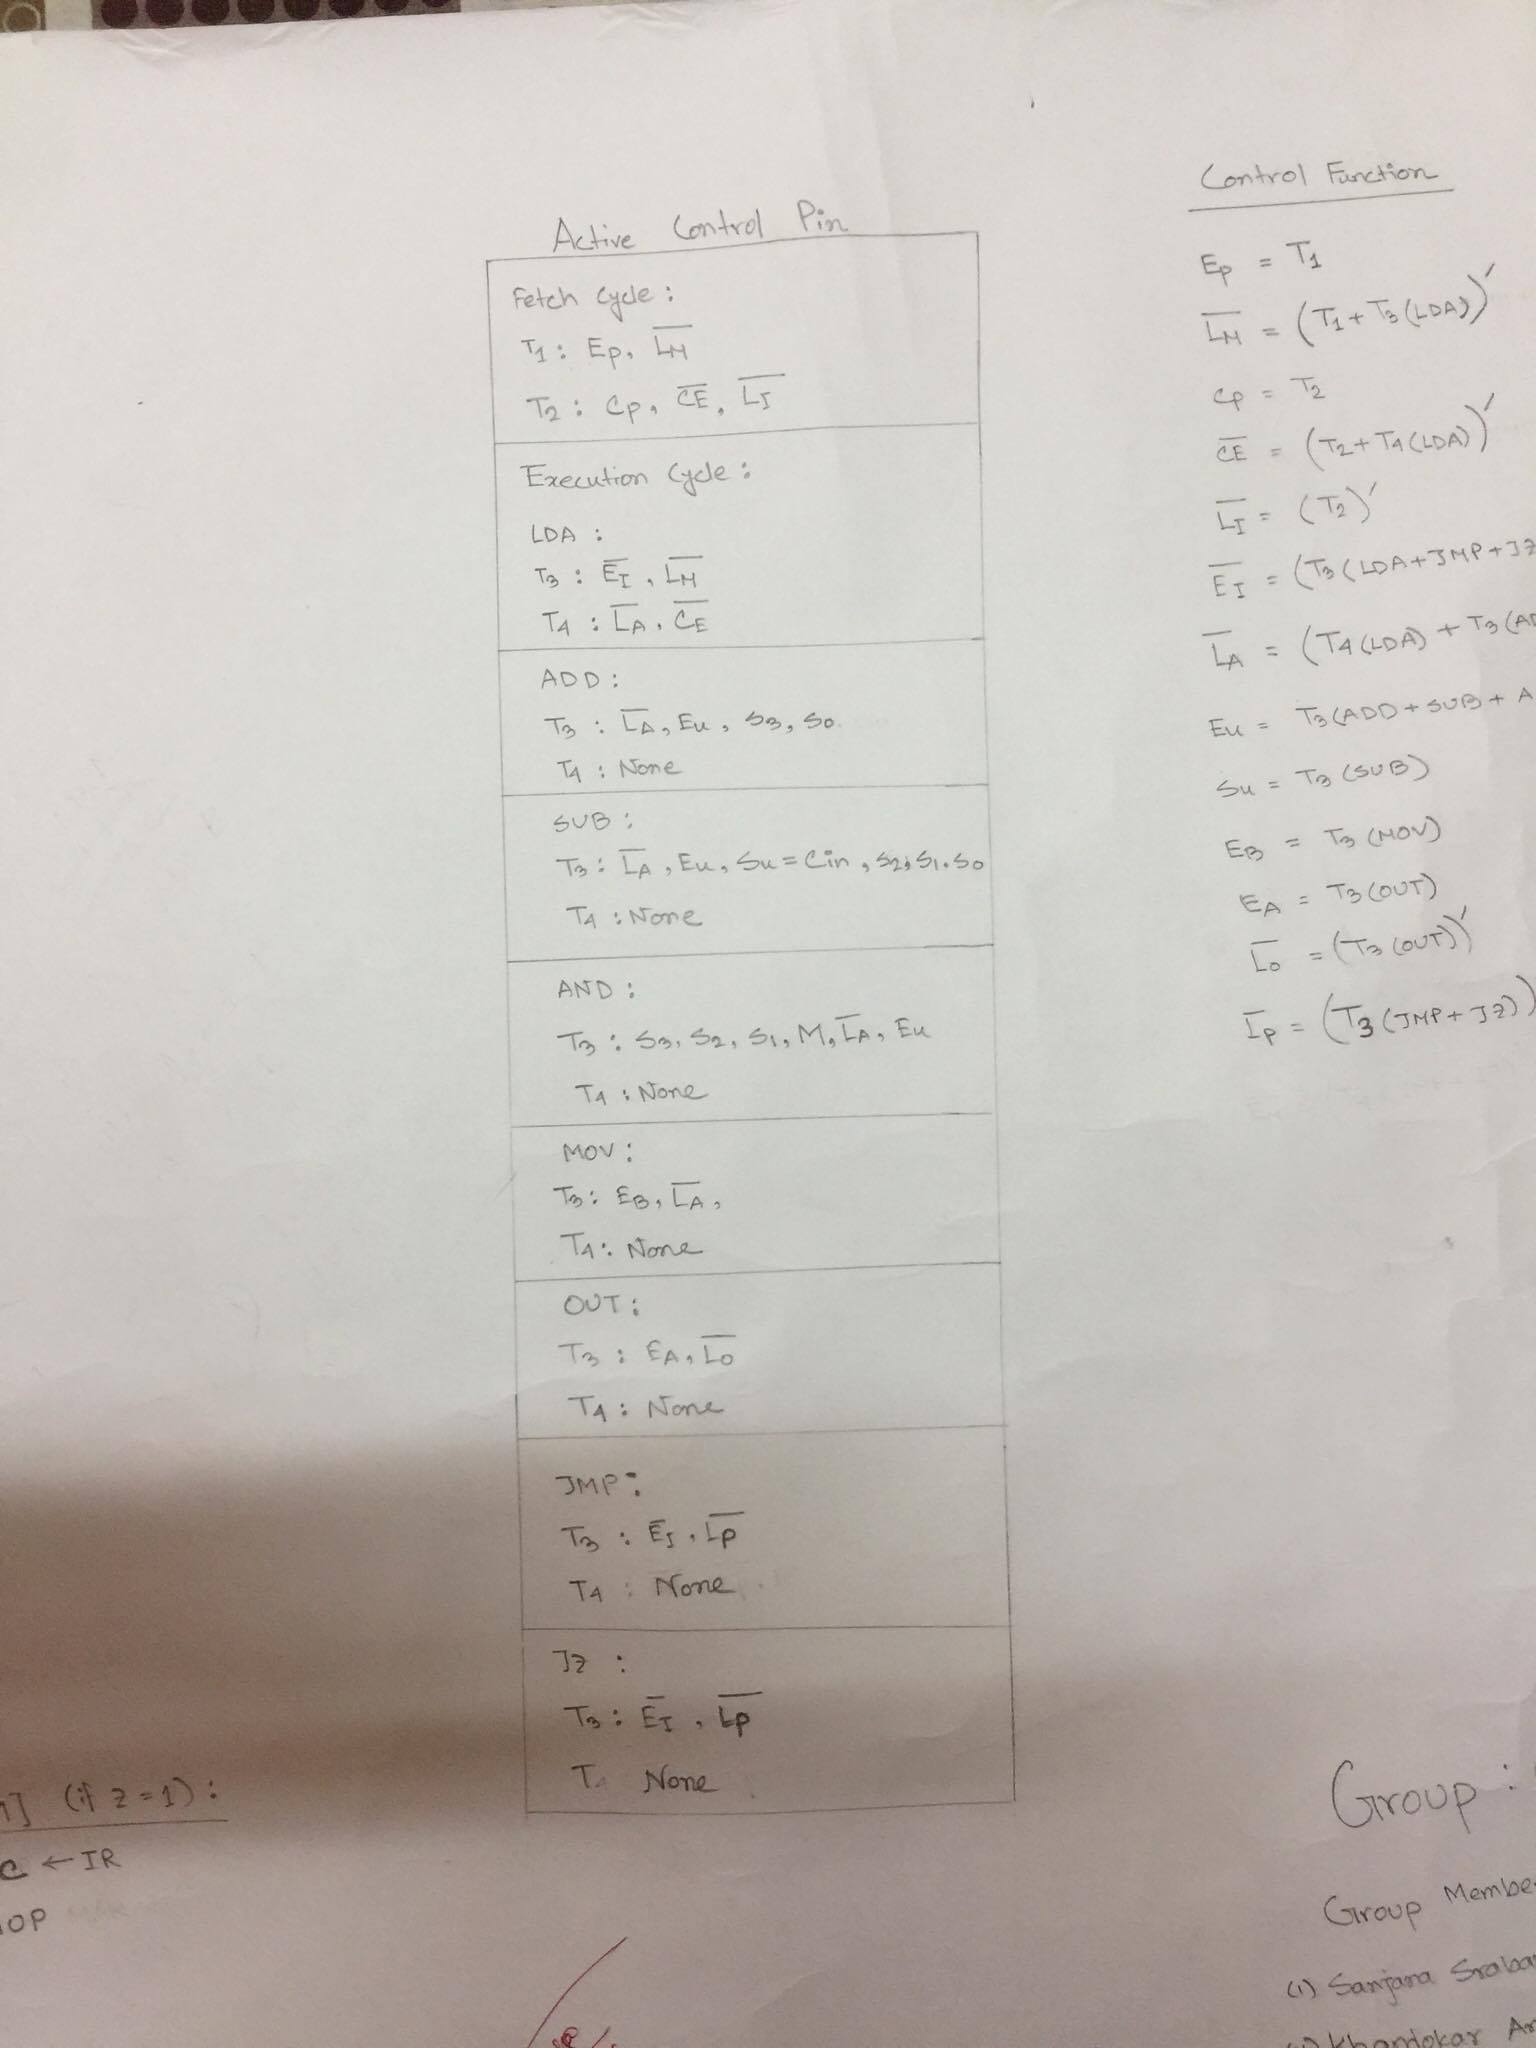 Active Control Pin
Fetch Cycle :
T1 : Ep, L̅M̅
T2 : Cp, C̅E̅, L̅I̅
Execution Cycle :
LDA :
T3 : E̅I̅, L̅M̅
T4 : L̅A̅, C̅E̅
ADD :
T3 : L̅A̅, Eu, S3, S0
T4 : None
SUB :
T3 : L̅A̅, Eu, Su = Cin, S2, S1, S0
T4 : None
AND :
T3 : S3, S2, S1, M, L̅A̅, Eu
T4 : None
MOV :
T3 : EB, L̅A̅,
T4 : None
OUT :
T3 : EA, L̅O̅
T4 : None
JMP :
T3 : E̅I̅, L̅P̅
T4 : None
JZ :
T3 : E̅I̅, L̅P̅
T None
Control Function
Ep = T1
L̅M̅ = (T1 + T3 (LDA))'
Cp = T2
C̅E̅ = (T2 + T4 (LDA))'
L̅I̅ = (T2)'
E̅I̅ = (T3 (LDA + JMP + JZ
L̅A̅ = (T4 (LDA) + T3 (AD
Eu = T3 (ADD + SUB + A
Su = T3 (SUB)
EB = T3 (MOV)
EA = T3 (OUT)
L̅o̅ = (T3 (OUT))'
I̅p = (T3 (JMP + JZ))
] (if z = 1) :
C ← IR
OP
Group :
Group Membe
(1) Sanjana Sraba
Khandokar